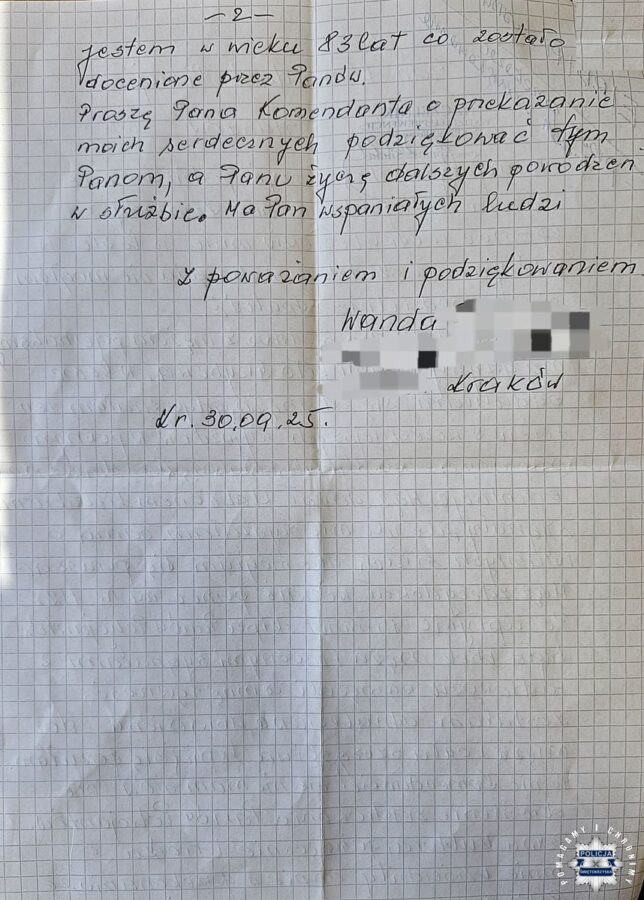 — 2 —
jestem w wieku 83 lat co zostało
docenione przez Panów.
Proszę Pana Komendanta o przekazanie
moich serdecznych podziękować tym
Panom, a Panu życzę dalszych powodzeń
w służbie. Ma Pan wspaniałych ludzi
Z poważaniem i podziękowaniem
Wanda
Kraków
Kr. 30.09.25.
POMAGAMY I CHRONIMY
POLICJA
ŚWIĘTOKRZYSKA